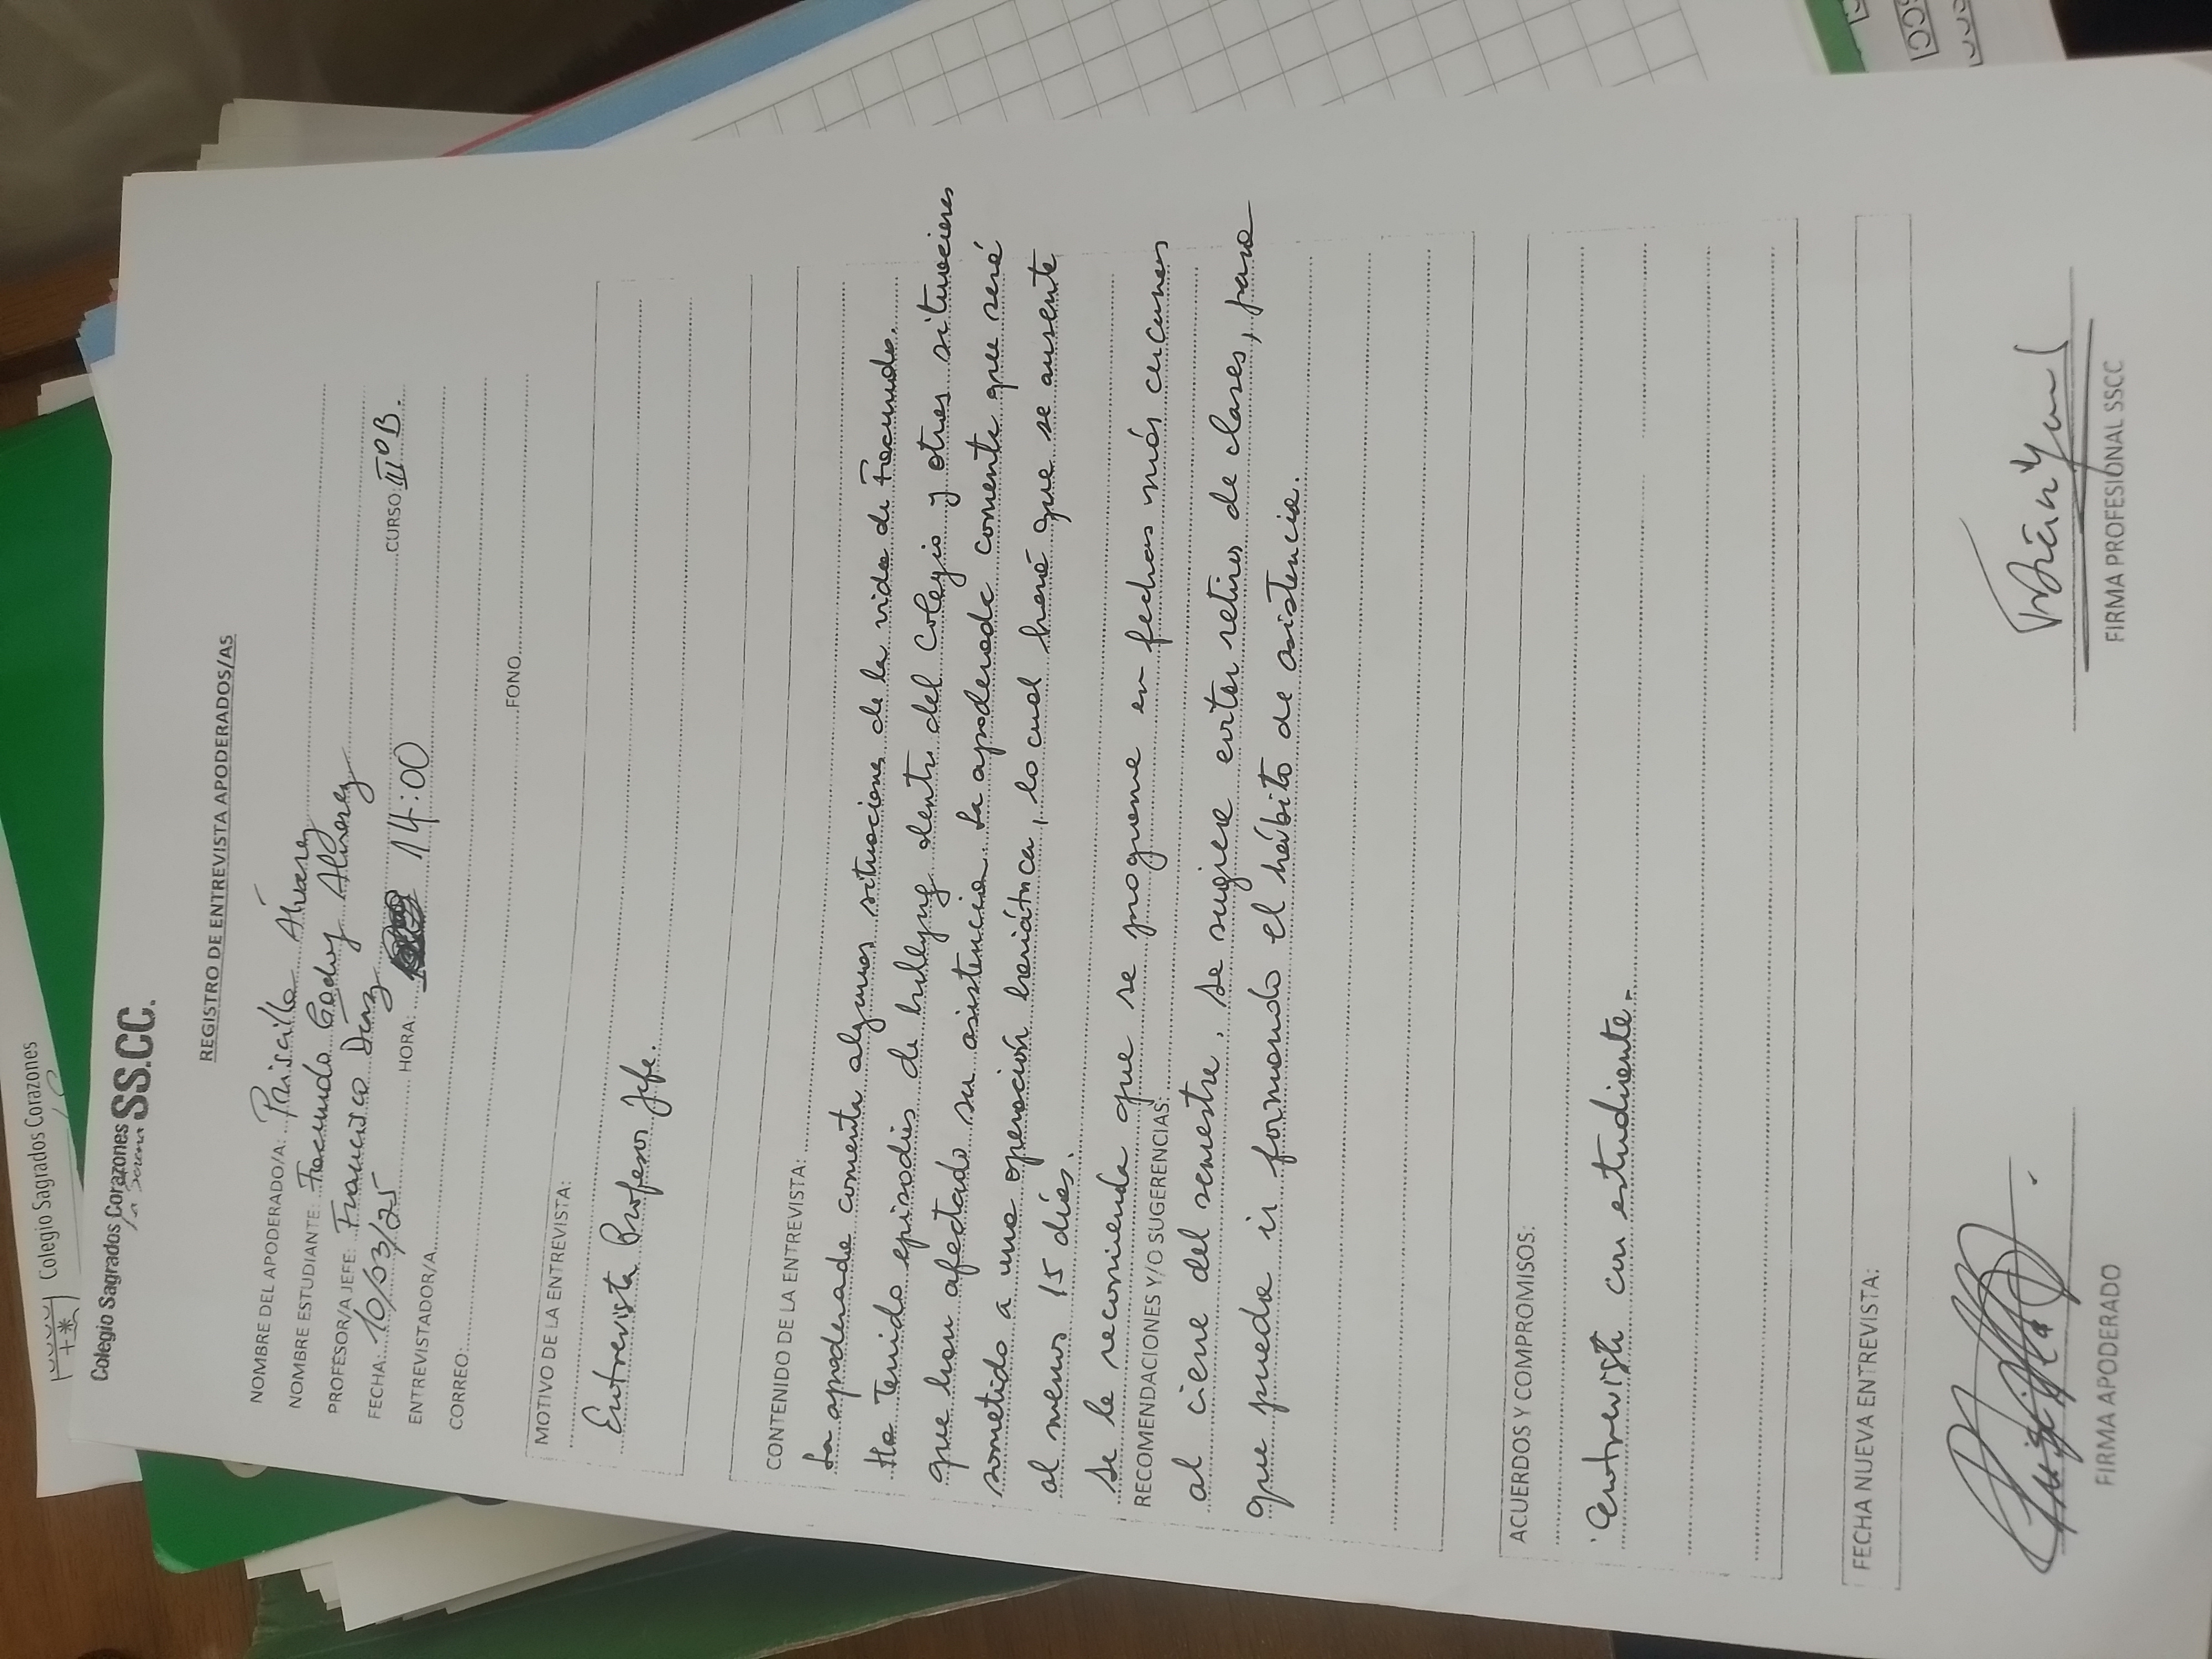 Colegio Sagrados Corazones
Colegio Sagrados Corazones SS.CC.
La Serena
REGISTRO DE ENTREVISTA APODERADOS/AS
NOMBRE DEL APODERADO/A: Priscilla Álvarez
NOMBRE ESTUDIANTE: Facundo Godoy Álvarez
PROFESOR/A JEFE: Francisco Díaz CURSO: IIºB.
FECHA: 10/03/25 HORA: 14:00
ENTREVISTADOR/A
CORREO: FONO
MOTIVO DE LA ENTREVISTA:
Entrevista Profesor Jefe.
CONTENIDO DE LA ENTREVISTA:
La apoderada comenta algunas situaciones de la vida de Facundo.
Ha tenido episodios de bullyng dentro del Colegio y otras situaciones
que han afectado su asistencia. La apoderada comenta que será
sometido a una operación bariátrica, lo cual hará que se ausente
al menos 15 días.
Se le recomienda que se programe en fechas más cercanas
RECOMENDACIONES Y/O SUGERENCIAS:
al cierre del semestre. Se sugiere evitar retiros de clases, para
que pueda ir formando el hábito de asistencia.
ACUERDOS Y COMPROMISOS:
Entrevista con estudiante.-
FECHA NUEVA ENTREVISTA:
FIRMA APODERADO FIRMA PROFESIONAL SSCC